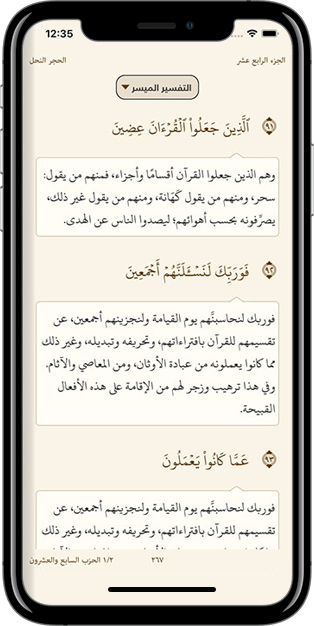 12:35
الجزء الرابع عشر
الحجر النحل
التفسير الميسر
٩١ ٱلَّذِينَ جَعَلُوا۟ ٱلْقُرْءَانَ عِضِينَ
وهم الذين جعلوا القرآن أقسامًا وأجزاء، فمنهم من يقول:
سحر، ومنهم من يقول كَهَانة، ومنهم من يقول غير ذلك،
يصرِّفونه بحسب أهوائهم؛ ليصدوا الناس عن الهدى.
٩٢ فَوَرَبِّكَ لَنَسْـَٔلَنَّهُمْ أَجْمَعِينَ
فوربك لنحاسبنَّهم يوم القيامة ولنجزينهم أجمعين، عن
تقسيمهم للقرآن بافتراءاتهم، وتحريفه وتبديله، وغير ذلك
مما كانوا يعملونه من عبادة الأوثان، ومن المعاصي والآثام.
وفي هذا ترهيب وزجر لهم من الإقامة على هذه الأفعال
القبيحة.
٩٣ عَمَّا كَانُوا۟ يَعْمَلُونَ
فوربك لنحاسبنَّهم يوم القيامة ولنجزينهم أجمعين، عن
تقسيمهم للقرآن بافتراءاتهم، وتحريفه وتبديله، وغير ذلك
٢٦٧
١/٢ الحزب السابع والعشرون